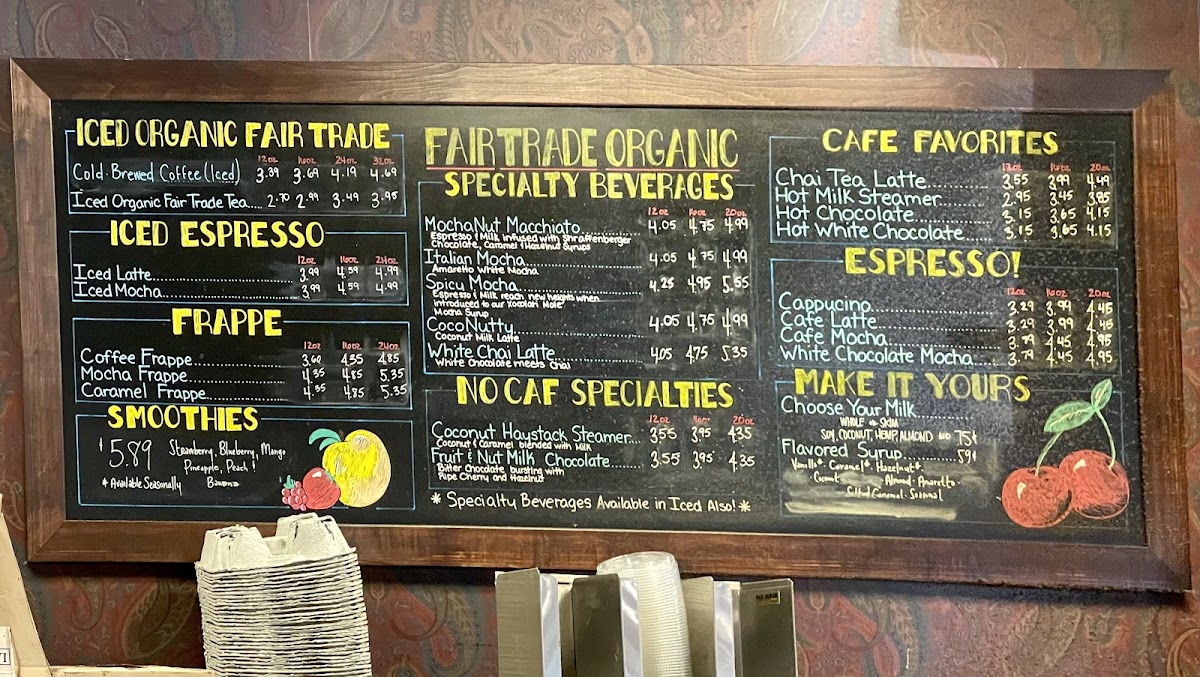 ICED ORGANIC FAIR TRADE
12oz 16oz 24oz 32oz
Cold-Brewed Coffee (Iced) 3.39 3.69 4.19 4.69
Iced Organic Fair Trade Tea..... 2.70 2.99 3.49 3.95
ICED ESPRESSO
12oz 16oz 24oz
Iced Latte 3.99 4.59 4.99
Iced Mocha 3.99 4.59 4.99
FRAPPE
12oz 16oz 24oz
Coffee Frappe 3.60 4.35 4.85
Mocha Frappe 4.35 4.85 5.35
Caramel Frappe 4.35 4.85 5.35
SMOOTHIES
$5.89 Strawberry, Blueberry, Mango
Pineapple, Peach &
* Available Seasonally Banana
FAIR TRADE ORGANIC
SPECIALTY BEVERAGES
12oz 16oz 20oz
MochaNut Macchiato 4.05 4.75 4.99
Espresso & Milk infused with Shraffenberger
Chocolate, Caramel & Hazelnut Syrups
Italian Mocha 4.05 4.75 4.99
Amaretto White Mocha
Spicy Mocha 4.25 4.95 5.55
Espresso & Milk reach new heights when
introduced to our Xocolatl Mole
Mocha Syrup
CocoNutty 4.05 4.75 4.99
Coconut Milk Latte
White Chai Latte 4.05 4.75 5.35
White Chocolate meets Chai
NO CAF SPECIALTIES
12oz 16oz 20oz
Coconut Haystack Steamer.... 3.55 3.95 4.35
Coconut & Caramel blended with Milk
Fruit & Nut Milk Chocolate 3.55 3.95 4.35
Bitter Chocolate, bursting with
Ripe Cherry and Hazelnut
* Specialty Beverages Available in Iced Also! *
CAFE FAVORITES
12oz 16oz 20oz
Chai Tea Latte 3.55 3.99 4.49
Hot Milk Steamer 2.95 3.45 3.85
Hot Chocolate 3.15 3.65 4.15
Hot White Chocolate 3.15 3.65 4.15
ESPRESSO!
12oz 16oz 20oz
Cappucino 3.29 3.99 4.45
Cafe Latte 3.29 3.99 4.45
Cafe Mocha 3.79 4.45 4.95
White Chocolate Mocha 3.79 4.45 4.95
MAKE IT YOURS
Choose Your Milk
WHOLE or SKIM
SOY, COCONUT, HEMP, ALMOND ADD 75¢
Flavored Syrup 59¢
Vanilla*. Caramel*. Hazelnut*.
Coconut Almond. Amaretto.
Salted Caramel. Seasonal